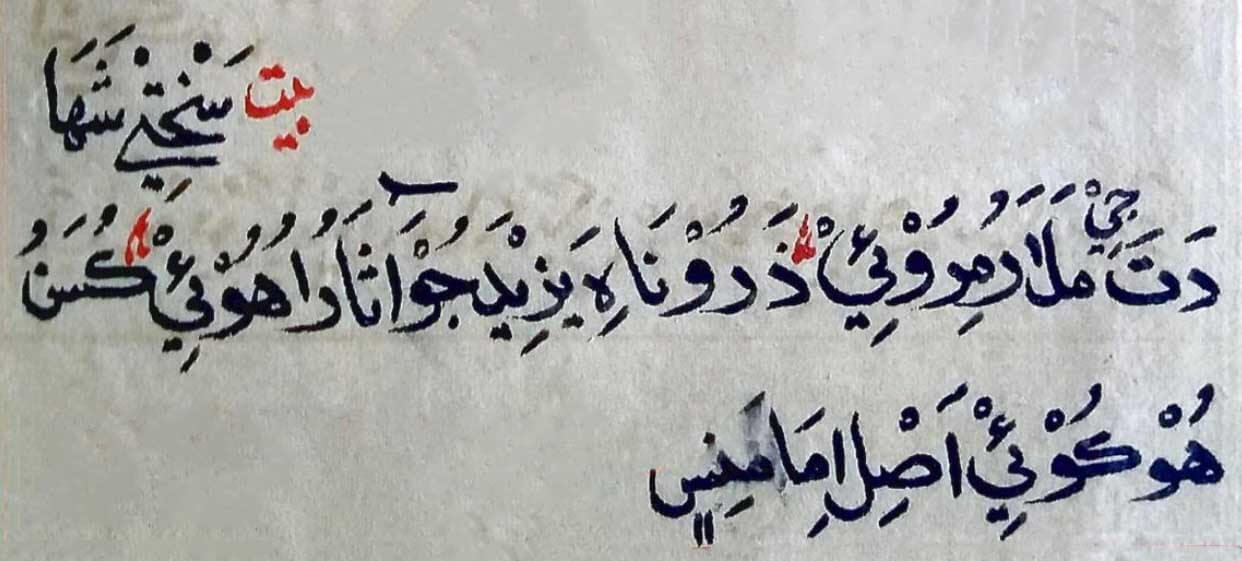 بيت سَنْختِيْ شَهَا
دَتَ جِيْ مَلَارُ مِرُوْئِيْ ذَرُوْ نَاهِ يَزِيْدَ جُوْ آثَارُ اهُوْئِيْ كُسَنُ
هُوْ كُوْئِيْ اَصْلِ اِمَامَنِسٍ